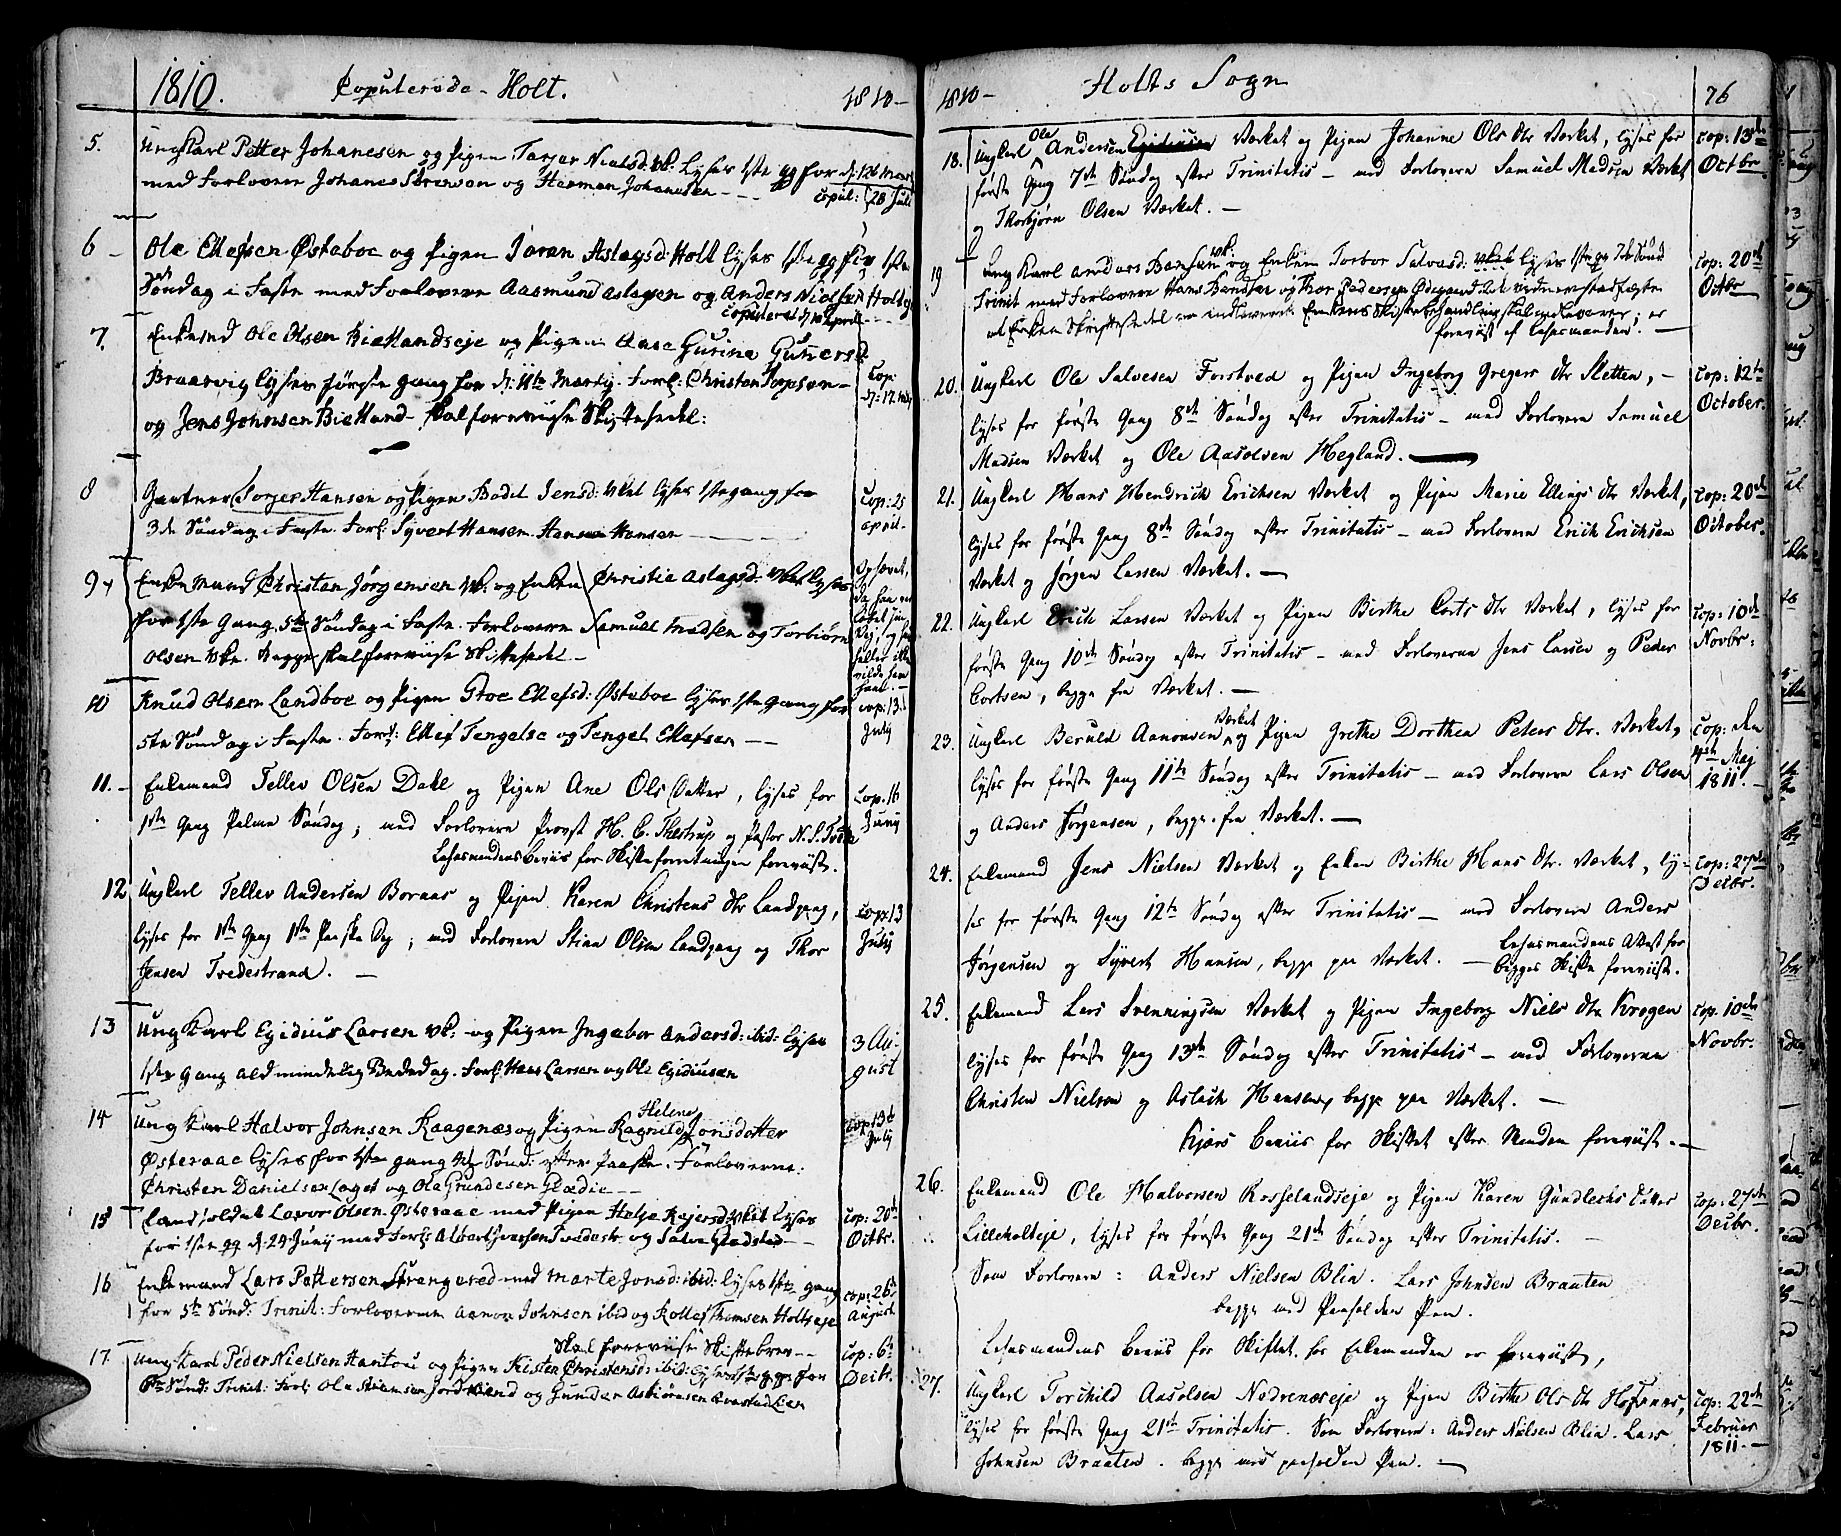 1810. Copulerede - Holt. 1810 -
5. Ungkarl Petter Johanesen og Pigen Tarjer Nielsd: Vk: lyses 1ste gg for d: 12te Marti
med Forlovere Johanes Sørensen og Herman Johanesen - -
copul: 28 Juli
6 - Ole Ellefsen Østeboe og Pigen Joran Aslagsd: Holt lyses 1ste gg for 1ste
Søndag i Faste med Forlovere Aasmund Aslagsen og Anders Nielsen Holteg
copuleret d 10 April
7. Enkemd Ole Olsen Biellandseje og Pigen Aase Gurine Gunersd
Braarvig lyses første gang for d: 11te Martij. Forl: Christen Jepsen -
og Jens Johnsen Bielland - skal foreviise Skiftesedel:
Cop: d: 17. Maj
8 Gartner Jørger Hansen og Pigen Bodel Jensd: Vket lyses 1ste gang for
3die Søndag i Faste. Forl: Syvert Hansen Hans Hansen
Cop: 25 april -
9 Enkemand Christen Jørgensen Vk: og Enken Christie Aslagsd: Vket lyses
for 1ste Gang 5te Søndag i Faste - Forlovere Samuel Madsen og Torbiørn
Olsen Vke. Begge skal foreviise Skiftesedel -
Ophævet, da han
10 Knud Olsen Landboe og Pigen Groe Ellefsd: Østeboe lyses 1ste gang for
5te Søndag i Faste. Forl: Ellef Tengelse og Tengel Ellefsen - -
cop: 13. July
11. - Enkemand Tellev Olsen Dale og Pigen Ane Ols Datter, lyses for
1ste Gang Palme Søndag; med Forlovere Provst H. C. Thestrup og Pastor N. S.
Lehnsmandens Beviis for Skifteforretningen foreviist.
Cop. 16 Juny
12 Ungkarl Tellev Andersen Boraas og Pigen Karen Christens dtr Landgang,
lyses for 1ste Gang 1ste Paaske Dag; med Forlovere Stian Olsen Landgang og Thor
Jensen Tvedestrand. -
Cop: 13 July
13 Ung Karl Egidius Larsen Vk: og Pigen Ingebor Andersd: ibid: lyses
1ste gang Almindelig Bededag. Forl: Hans Larsen og Ole Egidiusen
3 August
14 Ung Karl Halvor Johnsen Kaagenæs og Pigen Ragnild Helene Jonsdotter
Østeraae lyses for 1ste gang 4de Sønd: efter Paaske. Forloverne:
Christen Danielsen Laget og Ole Grundesen Glædie - -
cop 13de July
15 Landsoldat Lavor Olsen Østeraae med Pigen Helje Rejersd: Vket lyses
for 1ste gg d: 24 Junij med Forl: Albert Iversen Tvedestr. og Salve Gladsted -
Cop: 20de Octbr.
16 Enkemand Lars Pettersen Strangered med Marte Jonsd: ibid: lyses 1ste gang
for 5te Sønd: Trinit: Forloverne Aanon Johnsen ibid og Kollef Thomsen Holtseje
Skal foreviise Skiftebrev - -
cop: 26de August
17. Ung Karl Peder Nielsen Hantou og Pigen Kisten Christensd: ibid: lyses 1ste gg for
6te Sønd: Trinit: Forl: Ole og Gunder Asbiørnsen
Cop: 6te Octbr.
1810 - Holts Sogn 76
18. Ungkarl Ole Andersen Værket og Pigen Johanne Ols dtr Værket, lyses for
første Gang 7de Søndag efter Trinitatis - med Forlovere Samuel Madsen Værket
og Thorbjørn Olsen Værket. -
cop: 13de Octbr
19 Ung Karl Anders Bensen Vk: og Enken Torbor Salvesd: Vket lyses 1ste gg 7de Sønd
Trinit med Forlovere Hans Bensen og Thor Pedersen
at Enken Skiftesedel Enkens Skiftebehandling skal indleveres; er
foreviist af Lehsmanden. -
cop: 20de Octbr
20. Ungkarl Ole Salvesen Forstved og Pigen Ingeborg Gregers dtr Sletten, -
lyses for første Gang 8de Søndag efter Trinitatis - med Forlovere Samuel
Madsen Værket og Ole Aasolsen Hegland. -
Cop: 12te October.
21. Ungkarl Hans Hendrich Erichsen Værket og Pigen Marie Ellings dtr Værket,
lyses for første Gang 8de Søndag efter Trinitatis - med Forlovere Erich Erichsen
Værket og Jørgen Larsen Værket. -
Cop: 20de October.
22. Ungkarl Erich Larsen Værket og Pigen Birthe Corts dtr Værket, lyses for
første Gang 10de Søndag efter Trinitatis - med Forloverne Jens Larsen og Peder
Cortsen, begge fra Værket. -
cop: 10de Novbr:
23. Ungkarl Beruld Aanonsen Værket og Pigen Grethe Dorthea Peters dtr. Værket,
lyses for første Gang 11te Søndag efter Trinitatis - med Forlovere Lars Olsen
og Anders Jørgensen, begge fra Værket. -
cop: den 4de Maj 1811. -
24. Enkemand Jens Nielsen Værket og Enken Birthe Hans dtr. Værket, ly-
ses for første Gang 12te Søndag efter Trinitatis - med Forlovere Anders
Jørgensen og Syvert Hansen, begge paa Værket. - Lehsmandens Attest for
begges Skifte foreviist.
Cop: 27de Decbr.
25. Enkemand Lars Svenningsen Værket og Pigen Ingeborg Niels dtr Krogen
lyses for første Gang 13de Søndag efter Trinitatis - med Forloverne
Christen Nielsen og Aslach Hansen, begge paa Værket. -
Kjærs Beviis for Skiftet efter Manden foreviist. -
cop. 10de Novbr.
26. Enkemand Ole Halvorsen Rosselandseje og Pigen Karen Gundlechs Datter
Lilleholteje, lyses for første Gang 21de Søndag efter Trinitatis. -
Som Forlovere: Anders Nielsen Blia. Lars Johnsen Braaten
begge med Paaholden Pen.
Lehsmandens Beviis for Skiftet for Enkemanden er foreviist,
Cop: 27de Decbr.
27. Ungkarl Torchild Aasolsen Nedrenæseje og Pigen Birthe Ols dtr Hofsnes,
lyses for første Gang 21de Trinitatis. Som Forlovere: Anders Nielsen Blia. Lars
Johnsen Braaten. begge med paaholden Pen. -
cop: 22de Februar 1811. -